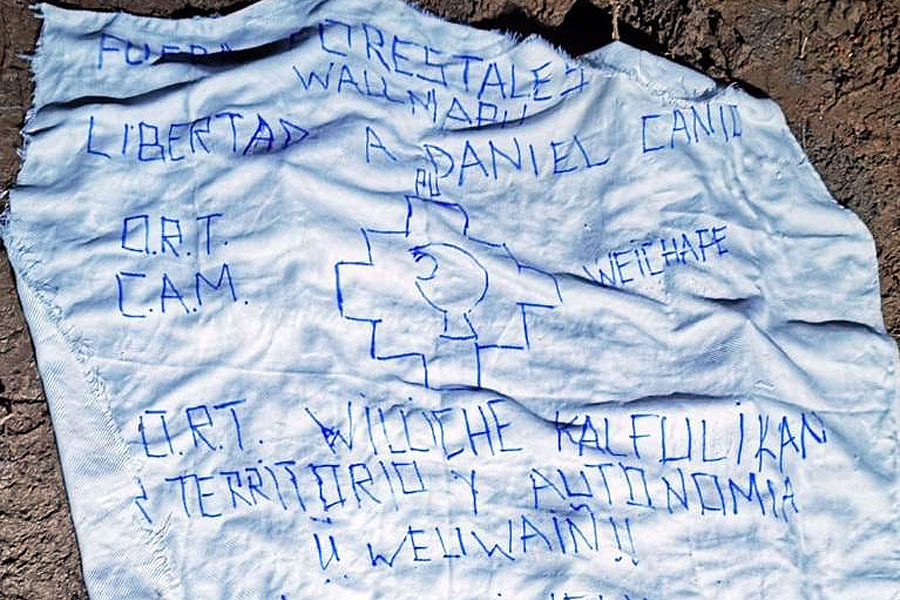 FUERA FORESTALES
WALLMAPU
LIBERTAD A DANIEL CANIO
PU
WEICHAFE
O.R.T.
C.A.M.
O.R.T. WILLICHE KALFULIKAN
TERRITORIO Y AUTONOMIA
¡¡ WEUWAIÑ !!